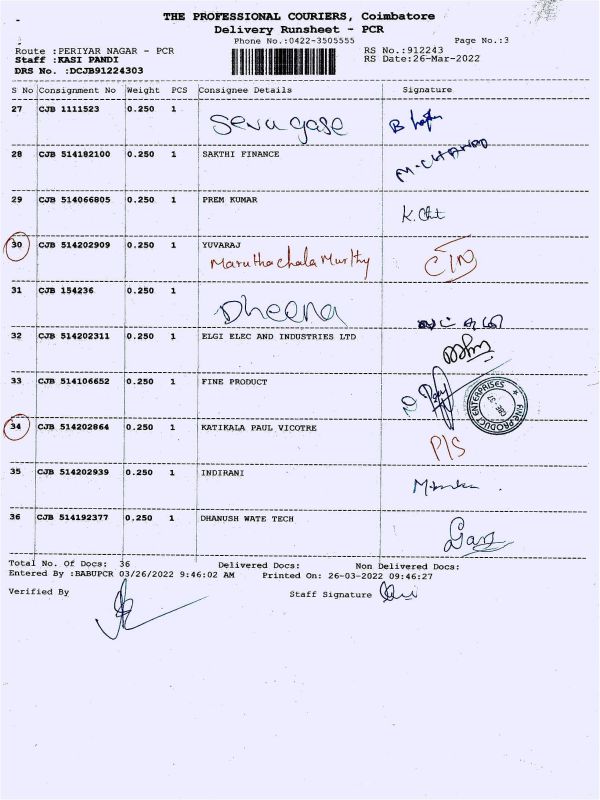 THE PROFESSIONAL COURIERS, Coimbatore
Delivery Runsheet - PCR
Phone No.:0422-3505555 Page No.:3
Route :PERIYAR NAGAR - PCR RS No.:912243
Staff :KASI PANDI RS Date:26-Mar-2022
DRS No. :DCJB91224303
S No Consignment No Weight PCS Consignee Details Signature
27 CJB 1111523 0.250 1 Sevugase
28 CJB 514182100 0.250 1 SAKTHI FINANCE
29 CJB 514066805 0.250 1 PREM KUMAR
30 CJB 514202909 0.250 1 YUVARAJ
Maruthachala Murthy
31 CJB 154236 0.250 1 Dheena
32 CJB 514202311 0.250 1 ELGI ELEC AND INDUSTRIES LTD
33 CJB 514106652 0.250 1 FINE PRODUCT
FINE PRODUCT ENTERPRISES
34 CJB 514202864 0.250 1 KATIKALA PAUL VICOTRE
P/S
35 CJB 514202939 0.250 1 INDIRANI
36 CJB 514192377 0.250 1 DHANUSH WATE TECH
Total No. Of Docs: 36 Delivered Docs: Non Delivered Docs:
Entered By :BABUPCR 03/26/2022 9:46:02 AM Printed On: 26-03-2022 09:46:27
Verified By Staff Signature